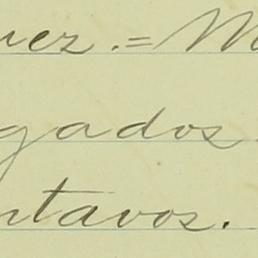 uez.= M
gados.
ntavos.